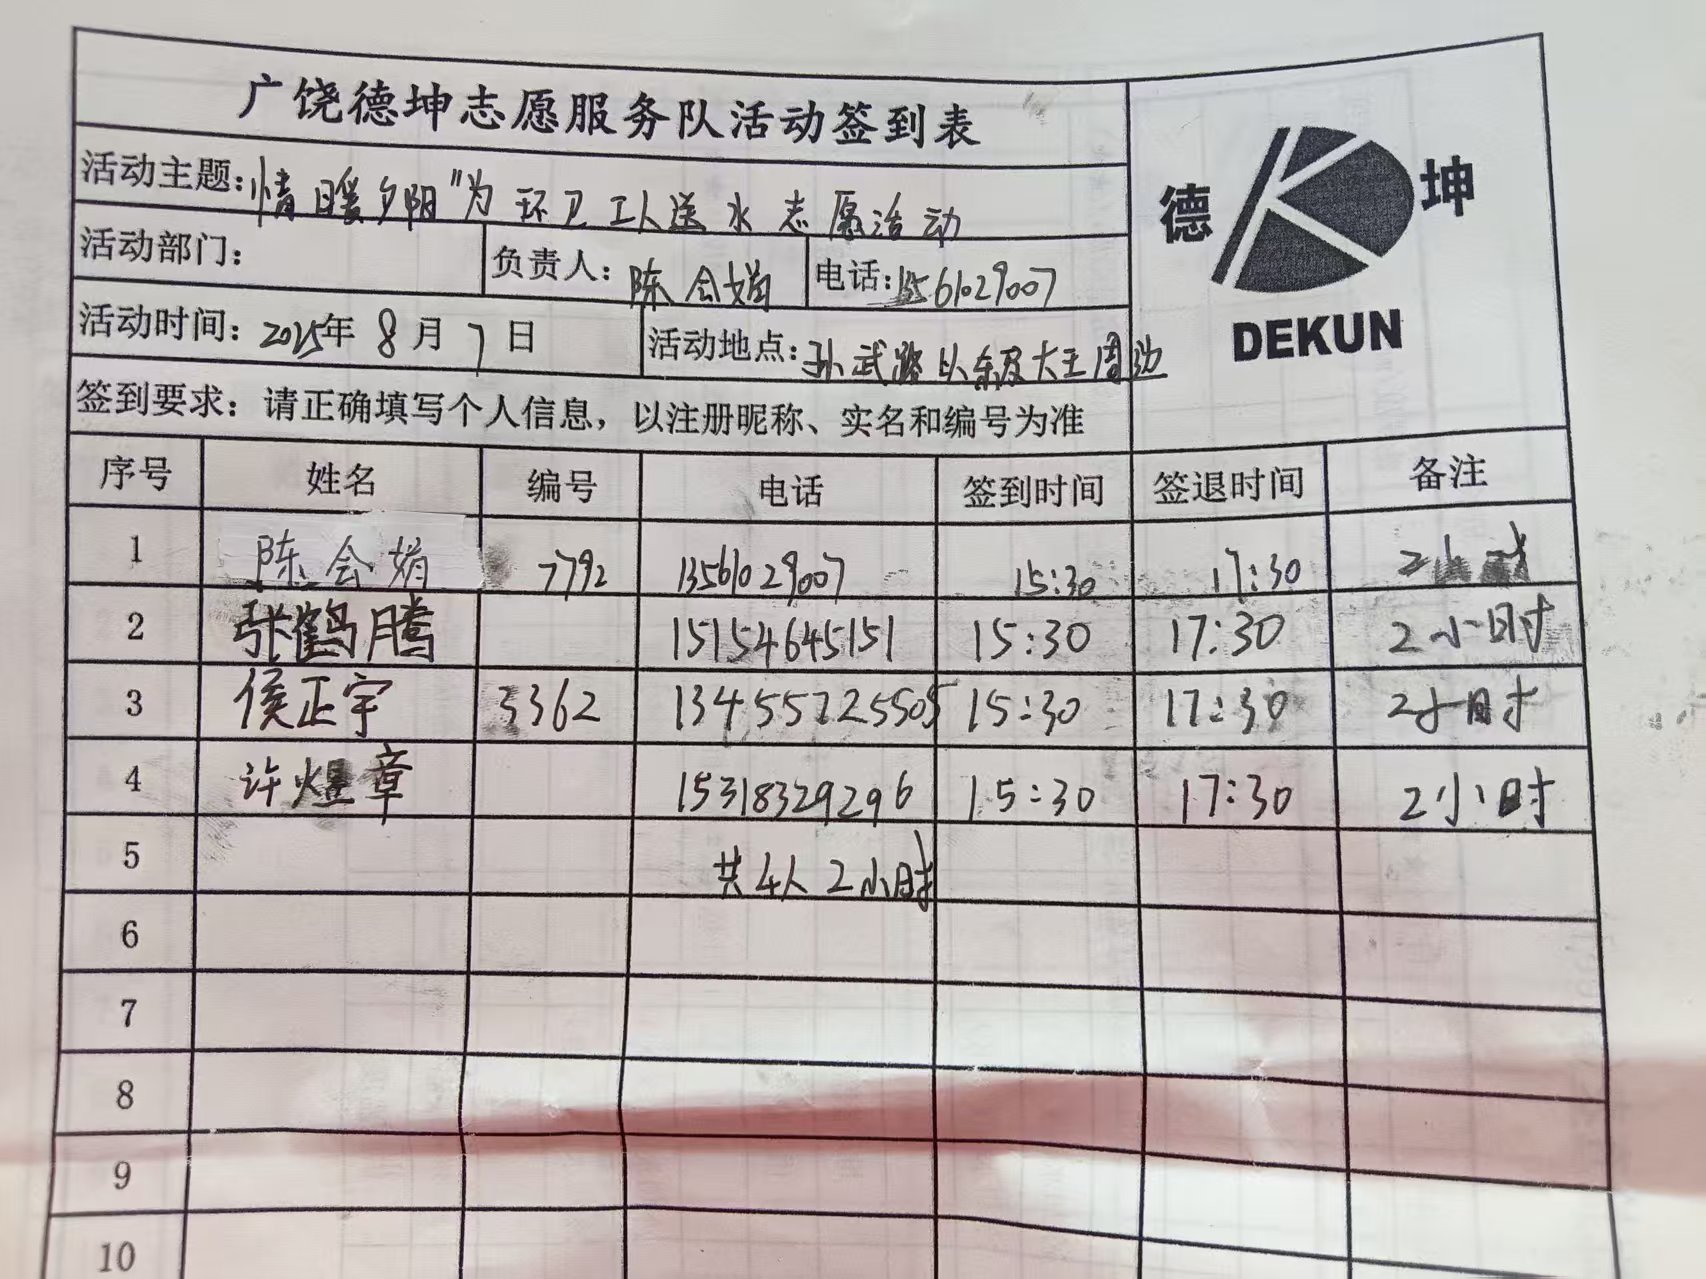 广饶德坤志愿服务队活动签到表
德 坤
DEKUN
活动主题:情暖夕阳"为环卫工人送水志愿活动
活动部门:
负责人:陈会娟 电话:13561029007
活动时间:2025年8月7日 活动地点:孙武路以东及大王周边
签到要求:请正确填写个人信息,以注册昵称、实名和编号为准
序号 姓名 编号 电话 签到时间 签退时间 备注
1 陈会娟 7792 13561029007 15:30 17:30 2小时
2 张鹤腾 15154645151 15:30 17:30 2小时
3 侯正宇 3362 13455725505 15:30 17:30 2小时
4 许煜章 15318329296 15:30 17:30 2小时
5 共4人2小时
6
7
8
9
10